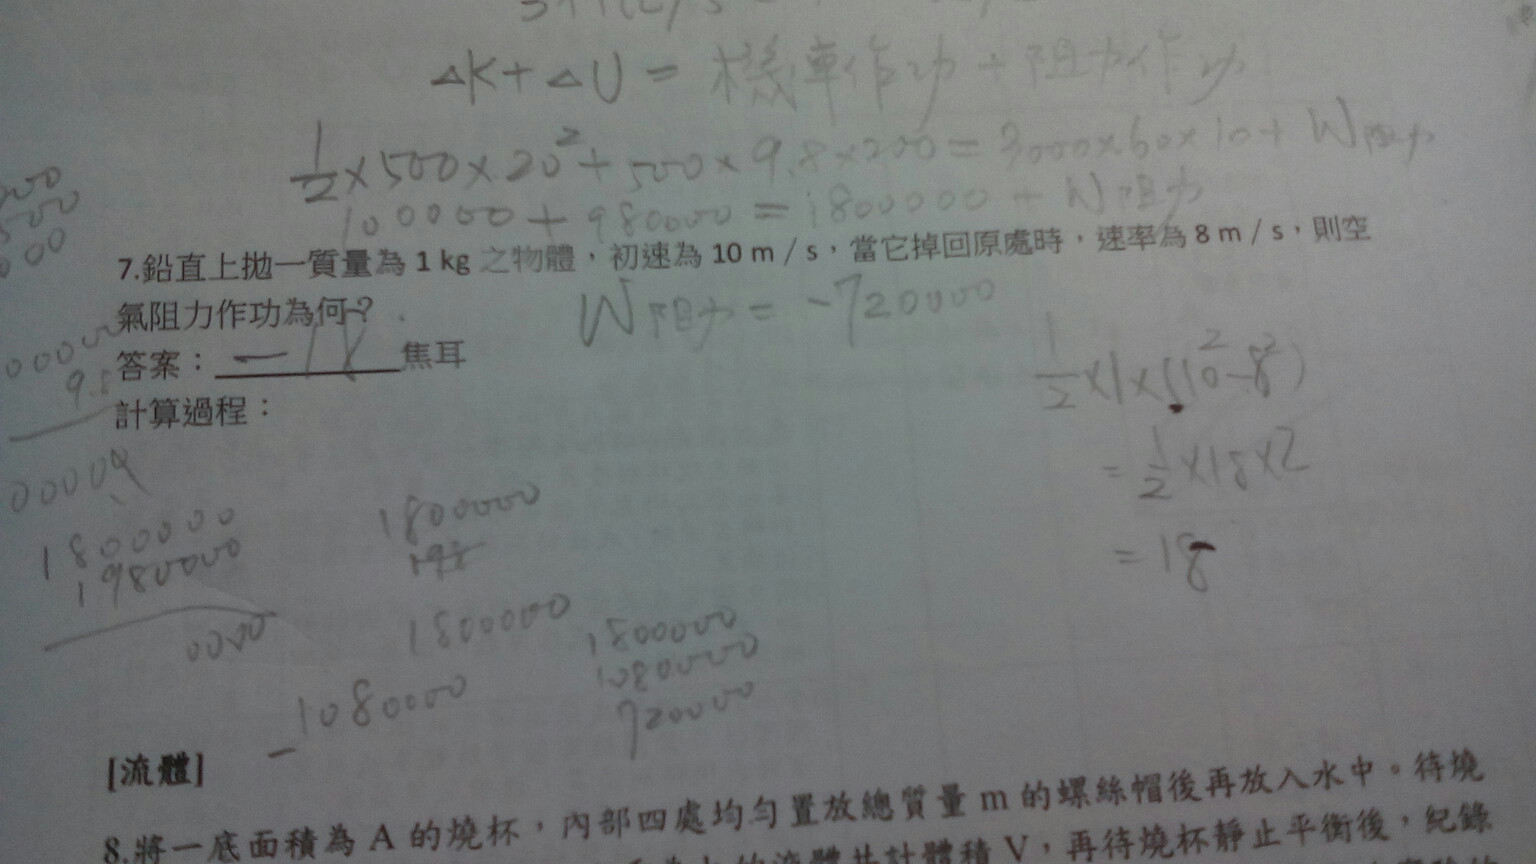 ΔK+ΔU=機車作功+阻力作功
1/2×500×20²+500×9.8×200=3000×60×10+W阻力
100000+980000=1800000+W阻力
7.鉛直上拋一質量為 1 kg 之物體，初速為 10 m / s，當它掉回原處時，速率為 8 m / s，則空
氣阻力作功為何？
W阻力=-720000
答案：-18焦耳
計算過程：
1/2×1×(10²-8²)
=1/2×18×2
=18
00009
1800000
1980000
0000
1800000
1800000
-1080000
1800000
1080000
720000
[流體]
8.將一底面積為 A 的燒杯，內部四處均勻置放總質量 m 的螺絲帽後再放入水中。待燒
的流體共計體積 V，再待燒杯靜止平衡後，紀錄